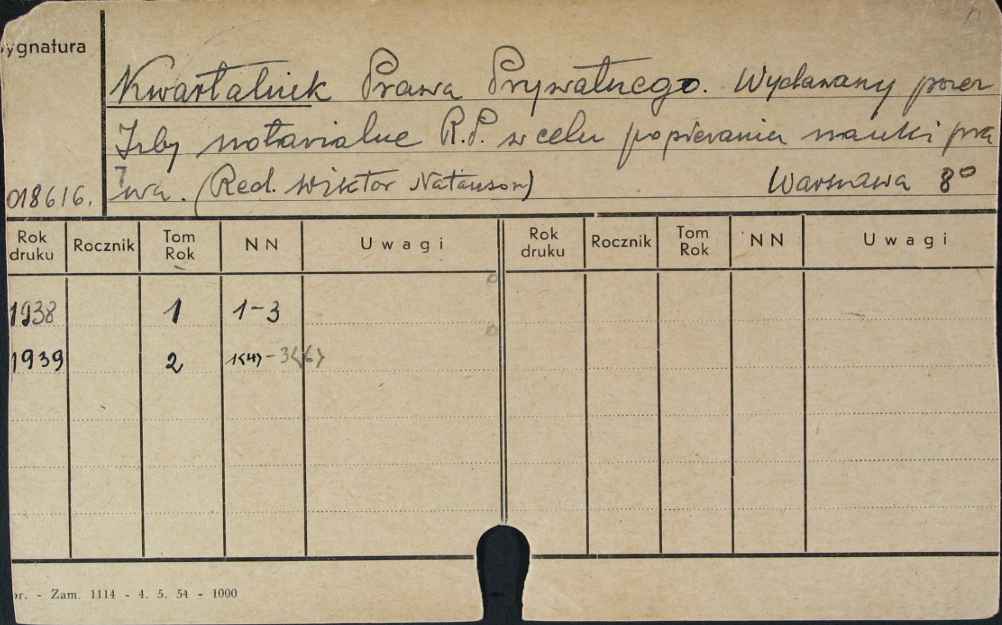 ygnatura
Kwartalnik Prawa Prywatnego. Wydawany przez
Izby notarialne R.P. w celu popierania nauki pra
018616. wa. (Red. Wiktor Natanson) Warszawa 8º
Rok druku Rocznik Tom Rok NN Uwagi Rok druku Rocznik Tom Rok NN Uwagi
1938 1 1-3
1939 2 1(4) - 3(6)
or. - Zam. 1114 - 4. 5. 54 - 1000